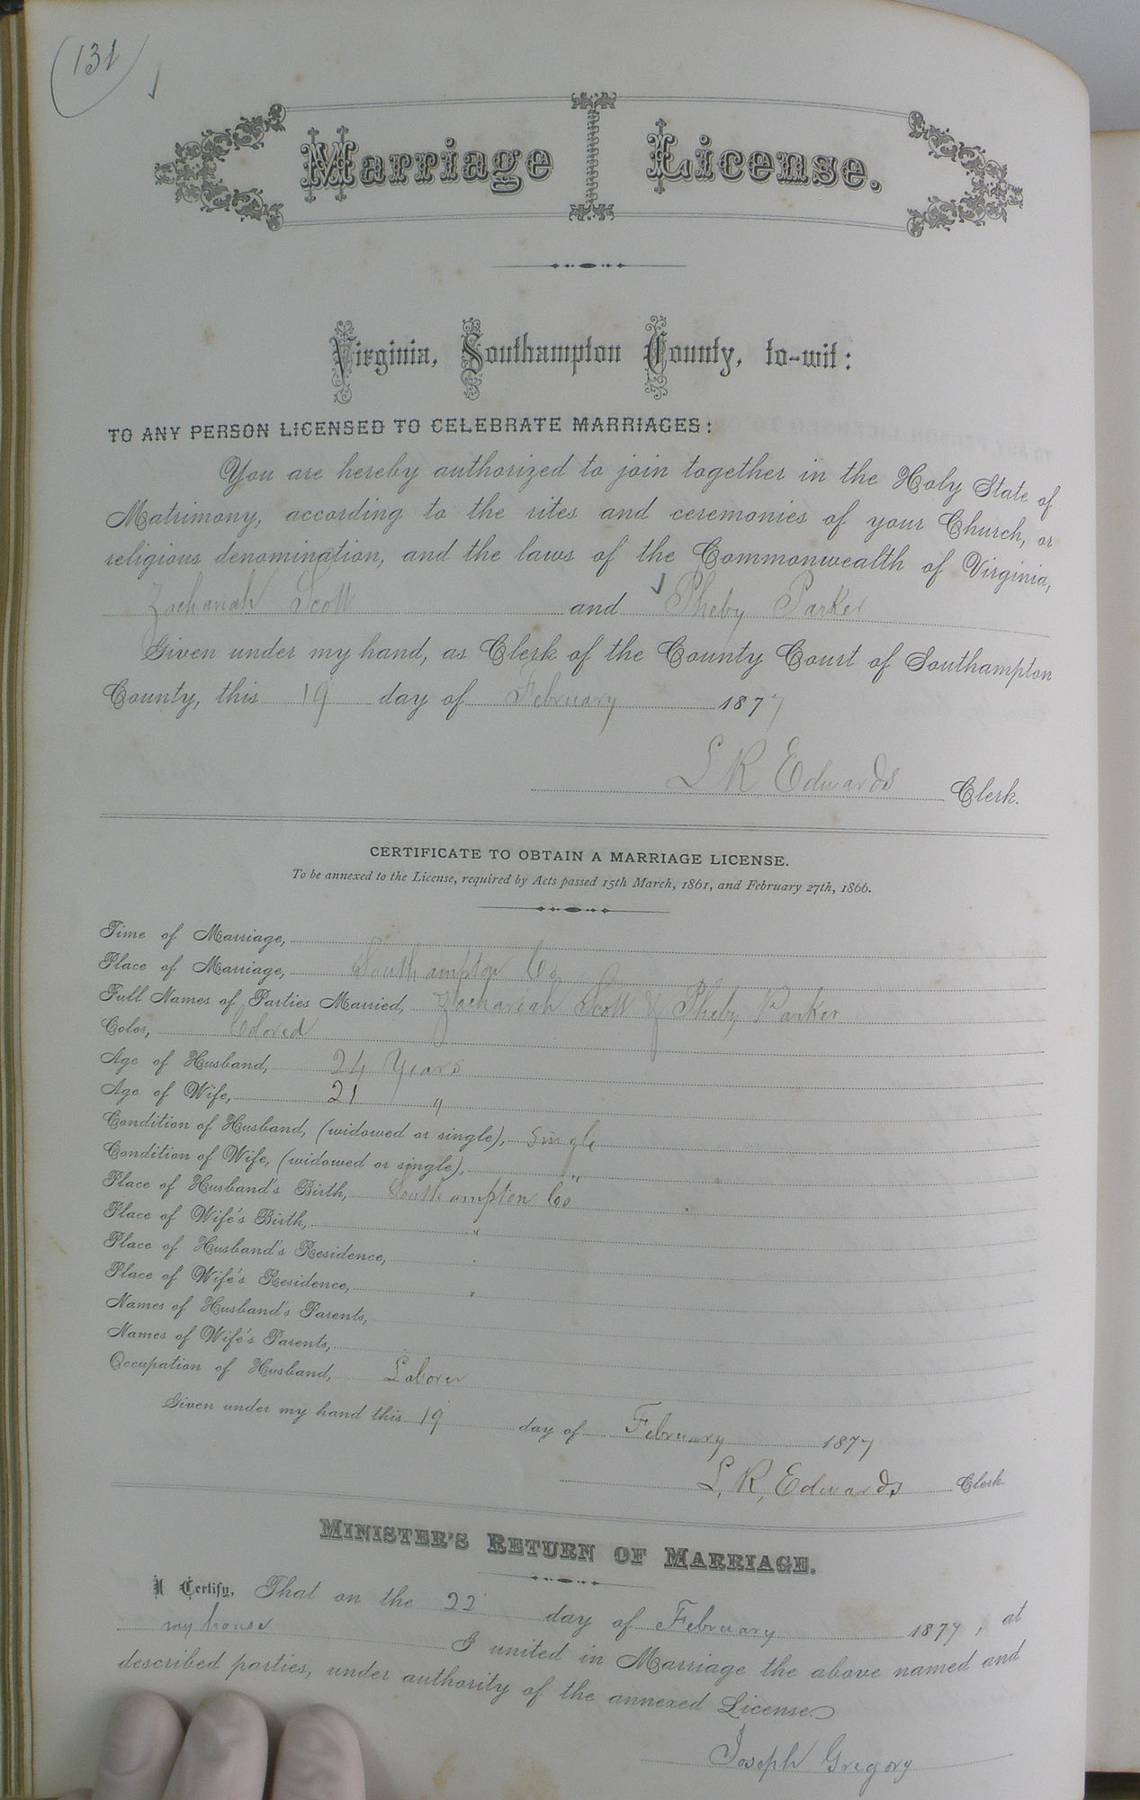 131
Marriage License.
Virginia, Southampton County, to-wit:
TO ANY PERSON LICENSED TO CELEBRATE MARRIAGES:
You are hereby authorized to join together in the Holy State of
Matrimony, according to the rites and ceremonies of your Church, or
religious denomination, and the laws of the Commonwealth of Virginia,
Zachariah Scott and Pheby Parker
Given under my hand, as Clerk of the County Court of Southampton
County, this 19 day of February 1877
L R Edwards Clerk.
CERTIFICATE TO OBTAIN A MARRIAGE LICENSE.
To be annexed to the License, required by Acts passed 15th March, 1861, and February 27th, 1866.
Time of Marriage,
Place of Marriage, Southampton Co
Full Names of Parties Married, Zachariah Scott & Pheby Parker
Color, Colored
Age of Husband, 24 Years
Age of Wife, 21 "
Condition of Husband, (widowed or single), Single
Condition of Wife, (widowed or single), "
Place of Husband's Birth, Southampton Co
Place of Wife's Birth, "
Place of Husband's Residence, "
Place of Wife's Residence, "
Names of Husband's Parents,
Names of Wife's Parents,
Occupation of Husband, Laborer
Given under my hand this 19 day of February 1877
L. R. Edwards Clerk
MINISTER'S RETURN OF MARRIAGE.
I Certify, That on the 22 day of February 1877, at
my house I united in Marriage the above named and
described parties, under authority of the annexed License.
Joseph Gregory